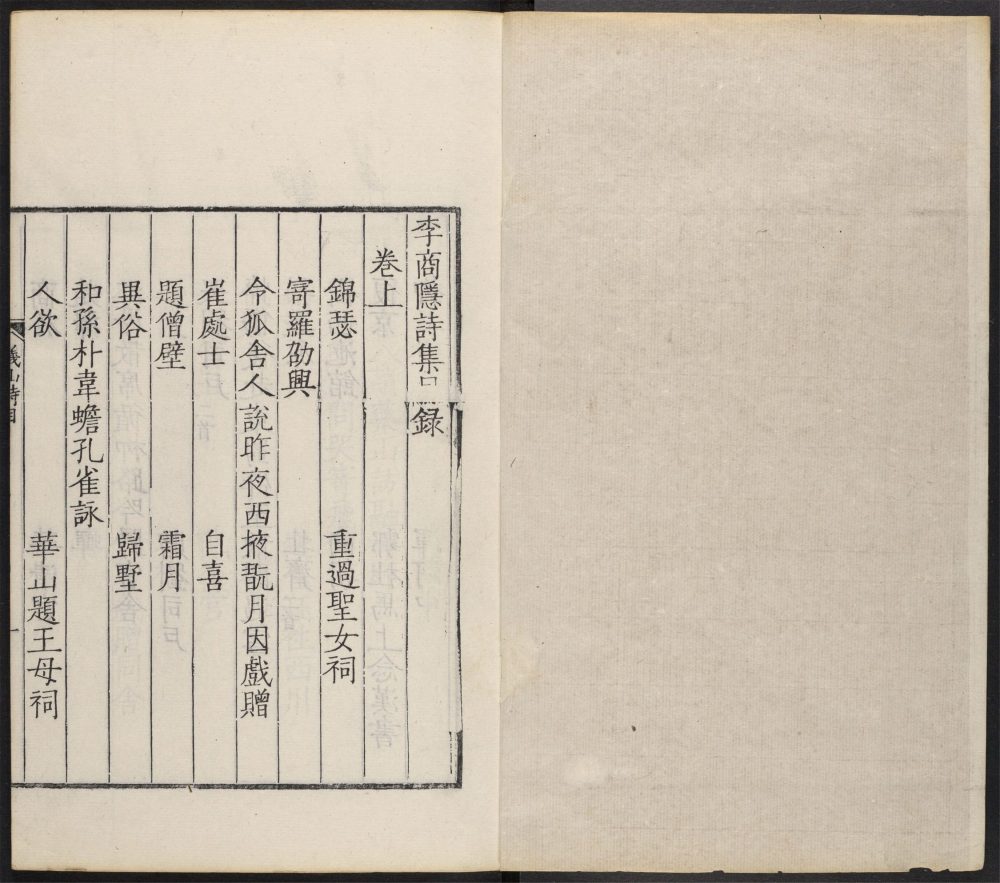 李商隱詩集目錄
卷上
錦瑟　重過聖女祠
寄羅劭興
令狐舍人說昨夜西掖翫月因戲贈
崔處士　自喜
題僧壁　霜月
異俗　歸墅
和孫朴韋蟾孔雀詠
人欲　華山題王母祠
義山詩目
一